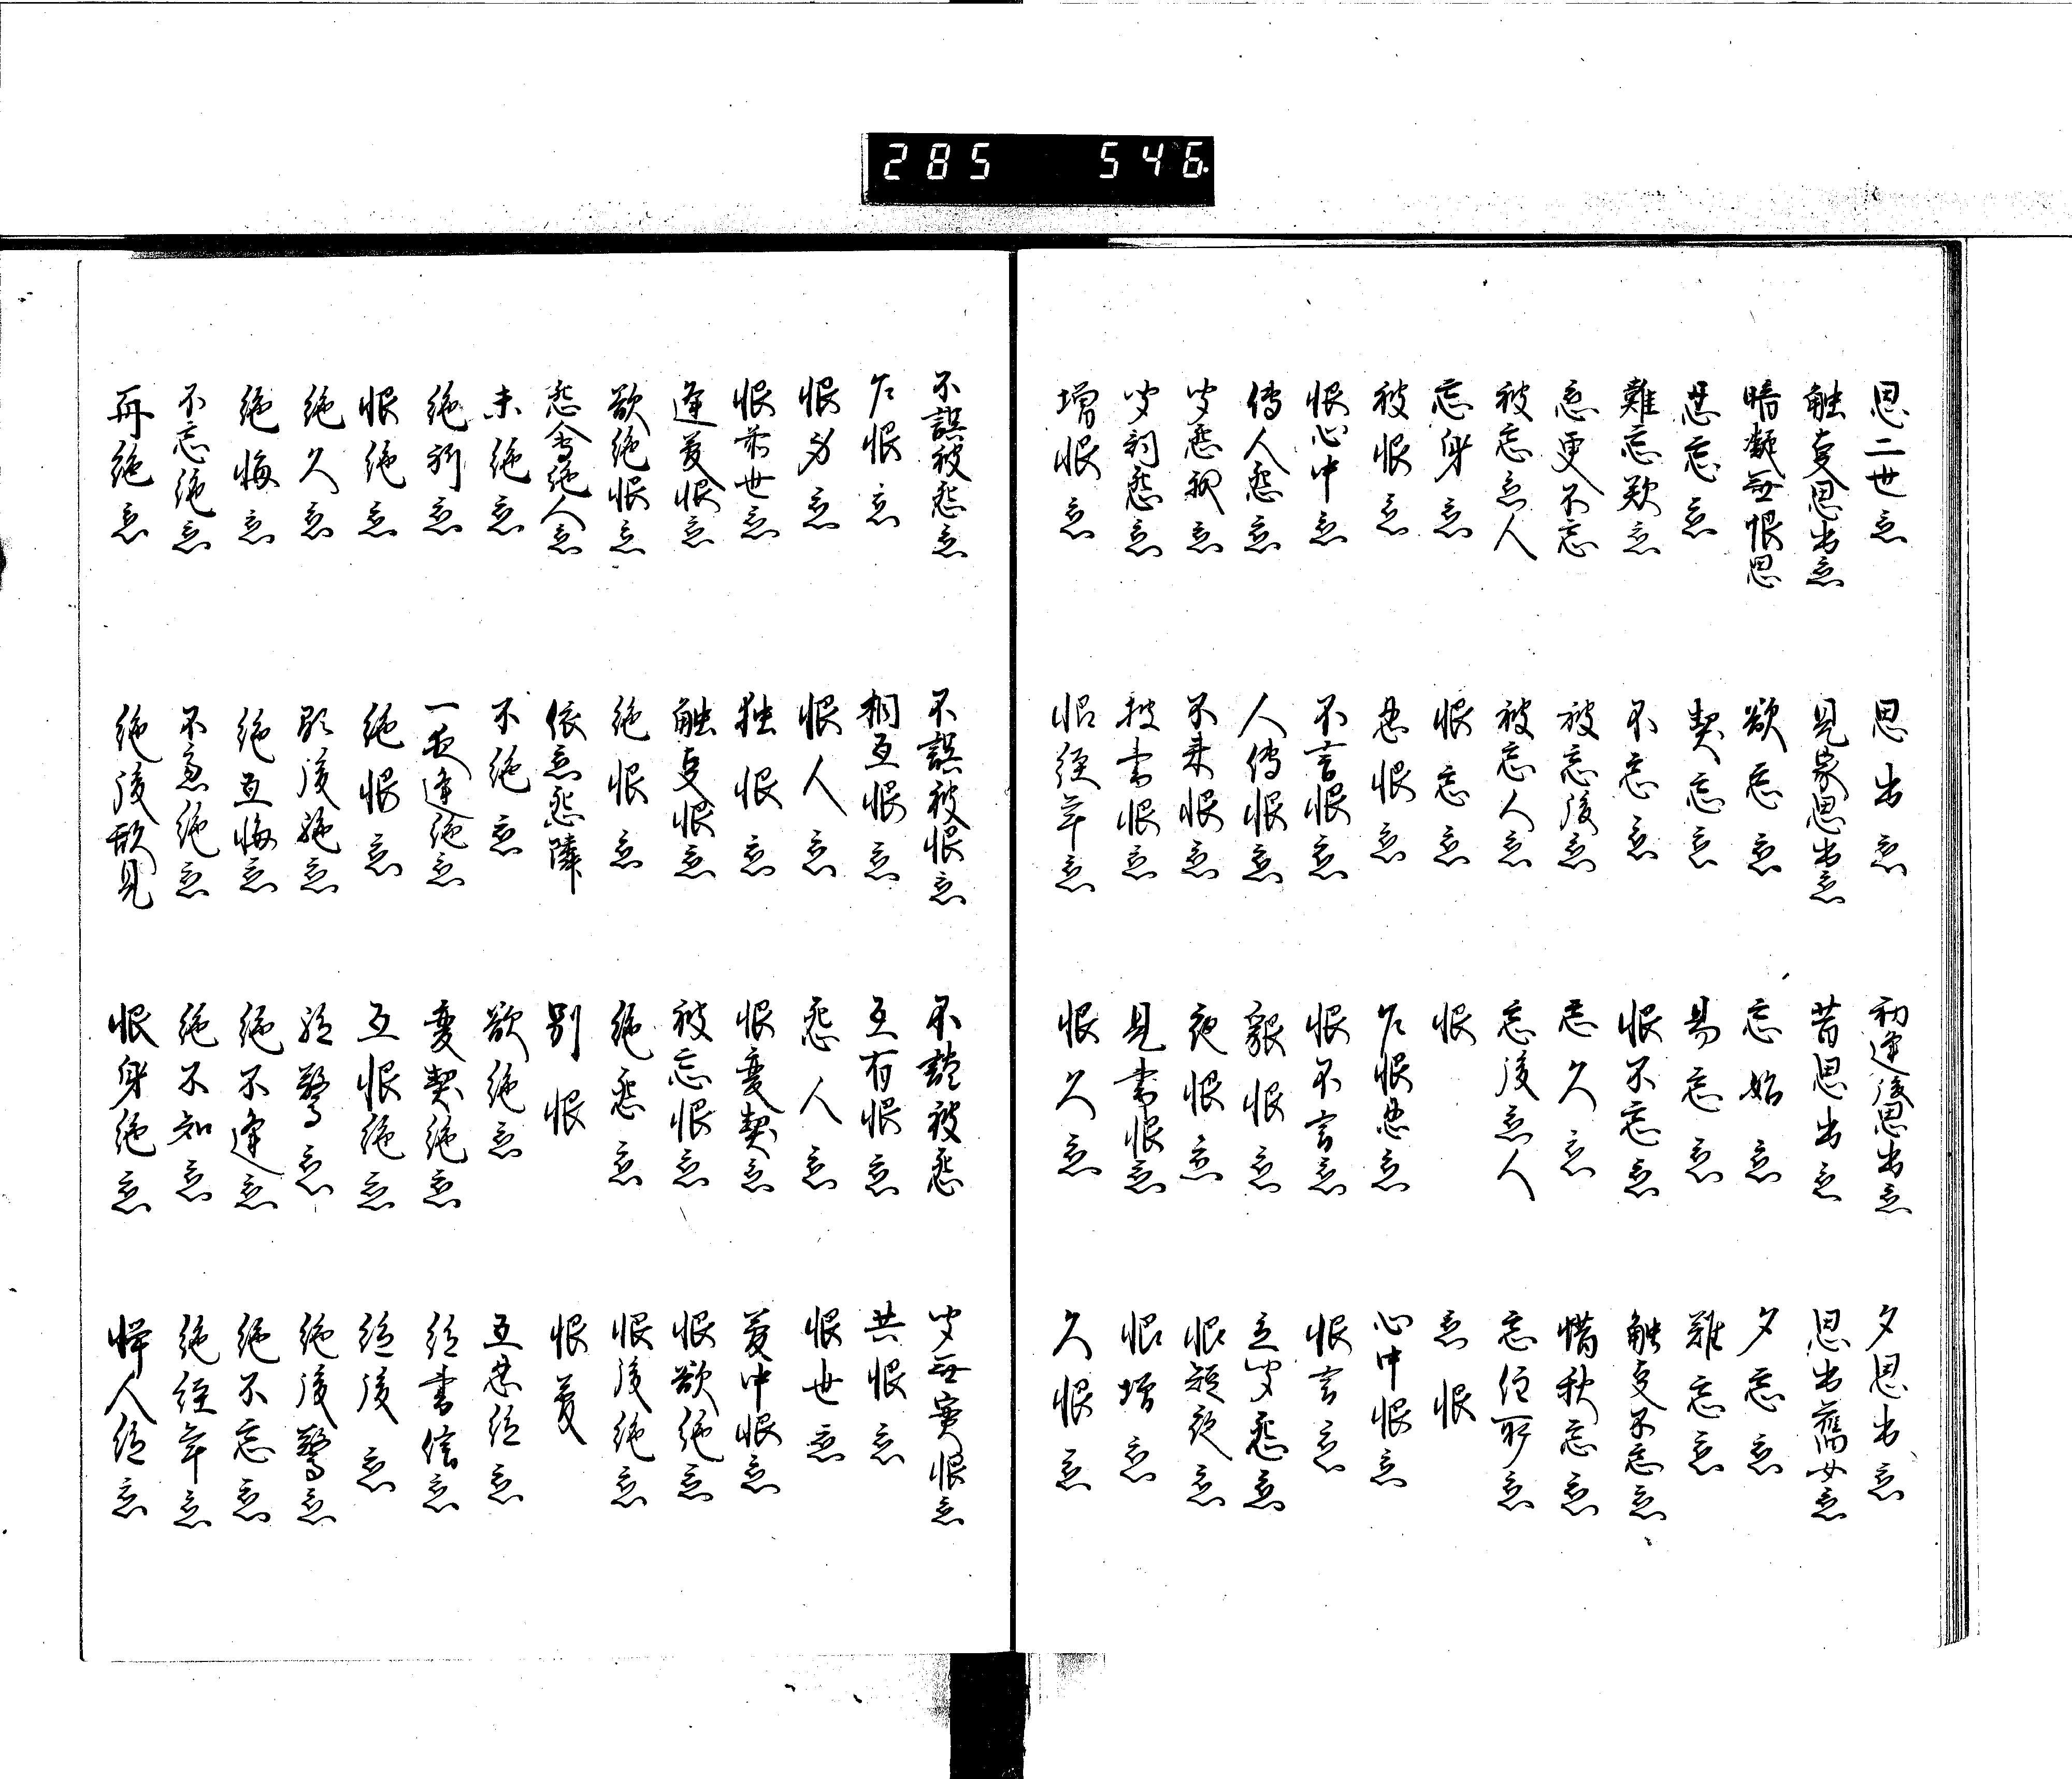 285 546
思二世恋 思出恋 初逢後思出恋 夕思出恋
触事思出恋 思出恋 昔思出恋 思出舊女恋
無恨思 欲忘恋 忘始恋 夕忘恋
忍忘恋 契忘恋 易忘恋 難忘恋
難忘歎恋 不忘恋 恨不忘恋 触事不忘恋
忘更不忘 被忘後恋 忘久恋 惜秋忘恋
被忘恋人 被忘人恋 忘後恋人 忘住所恋
忘身恋 恨忘恋 恨 恋恨
被恨恋 忍恨恋 乍恨忍恋 心中恨恋
恨心中恋 不言恨恋 恨不言恋 恨言恋
傳人怨恋 人傳恨恋 貌恨恋 互聞怨恋
聞怨我恋 不来恨恋 夜恨恋 恨短夜恋
聞詞怨恋 披書恨恋 見書恨恋 恨増恋
増恨恋 恨経年恋 恨久恋 久恨恋
不誤被怨恋 不誤被恨恋 不被怨 聞無実恨恋
乍恨恋 相互恨恋 互有恨恋 共恨恋
恨身恋 恨人恋 怨人恋 恨世恋
恨前世恋 独恨恋 恨変契恋 夢中恨恋
逢夢恨恋 触事恨恋 被忘恨恋 恨欲絶恋
欲絶恨恋 絶恨恋 絶怨恋 恨後絶恋
怨会絶人恋 依恋怨隣 別恨 恨夢
未絶恋 不絶恋 欲絶恋 互忍絶恋
絶別恋 一夜逢絶恋 変契絶恋 絶書信恋
恨絶恋 絶恨恋 互恨絶恋 絶後恋
絶久恋 顕後絶恋 絶驚恋 絶後驚恋
絶悔恋 絶互悔恋 絶不逢恋 絶不忘恋
不忘絶恋 不意絶恋 絶不知恋 絶経年恋
再絶恋 絶後形見 恨身絶恋 憚人絶恋